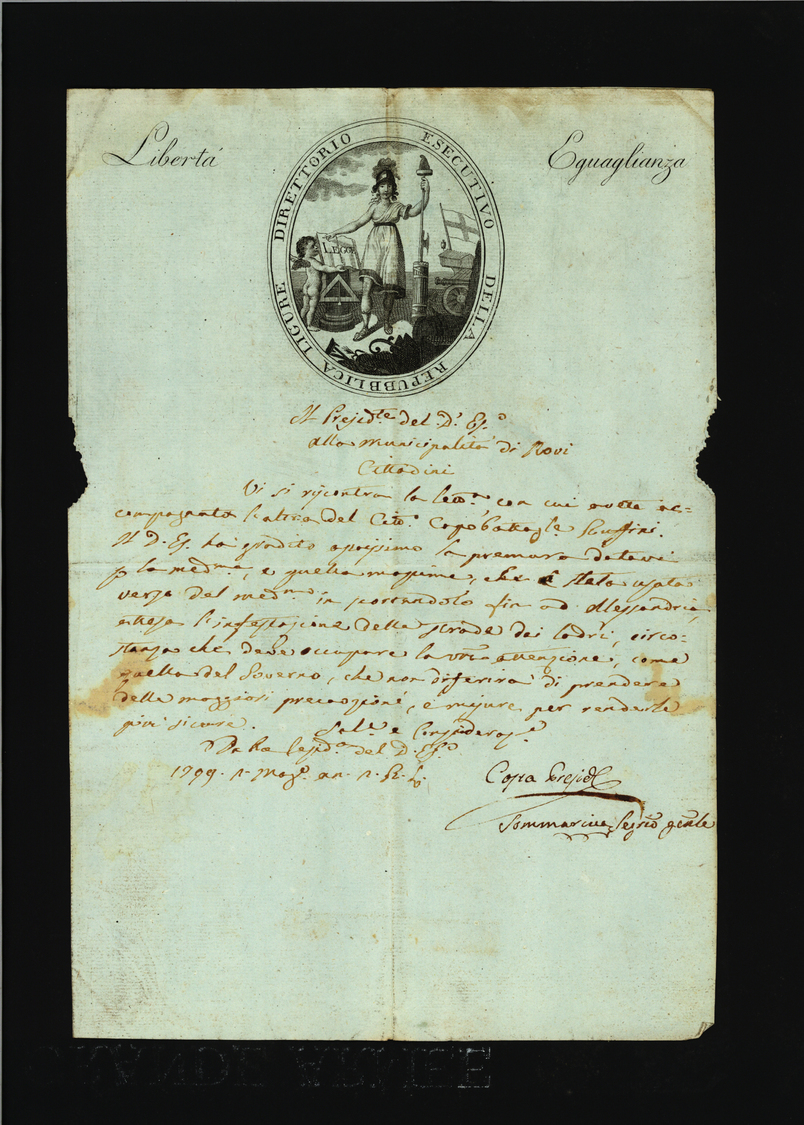 Libertá
Eguaglianza
DIRETTORIO ESECUTIVO DELLA REPUBBLICA LIGURE
LEGGE
Il Presid.te del D. Es.o
alla Municipalità di Novi
Cittadini
Vi si riscontra la lett.a con cui avete ac=
compagnata l'altra del Citt.o Capo batt.
Il D. Es. ha gradito assaissimo la premura datavi
p la med.ma, e quella massime, che è stata usata
verso del med.mo in scortandolo fin ad Alessandria,
attesa l'infestazione delle strade dei ladri, circo=
stanza che deve occupare la vra attenzione, come
quella del Governo, che non diferirà di prendere
delle maggiori precauzioni, e misure per renderle
più sicure. Salute e Consideraz.e
Dalla Resid.a del D. Es.o
1799. 1. Mag.o an. 2. R. L.
Costa Presid.
Sommariva Segrio genle